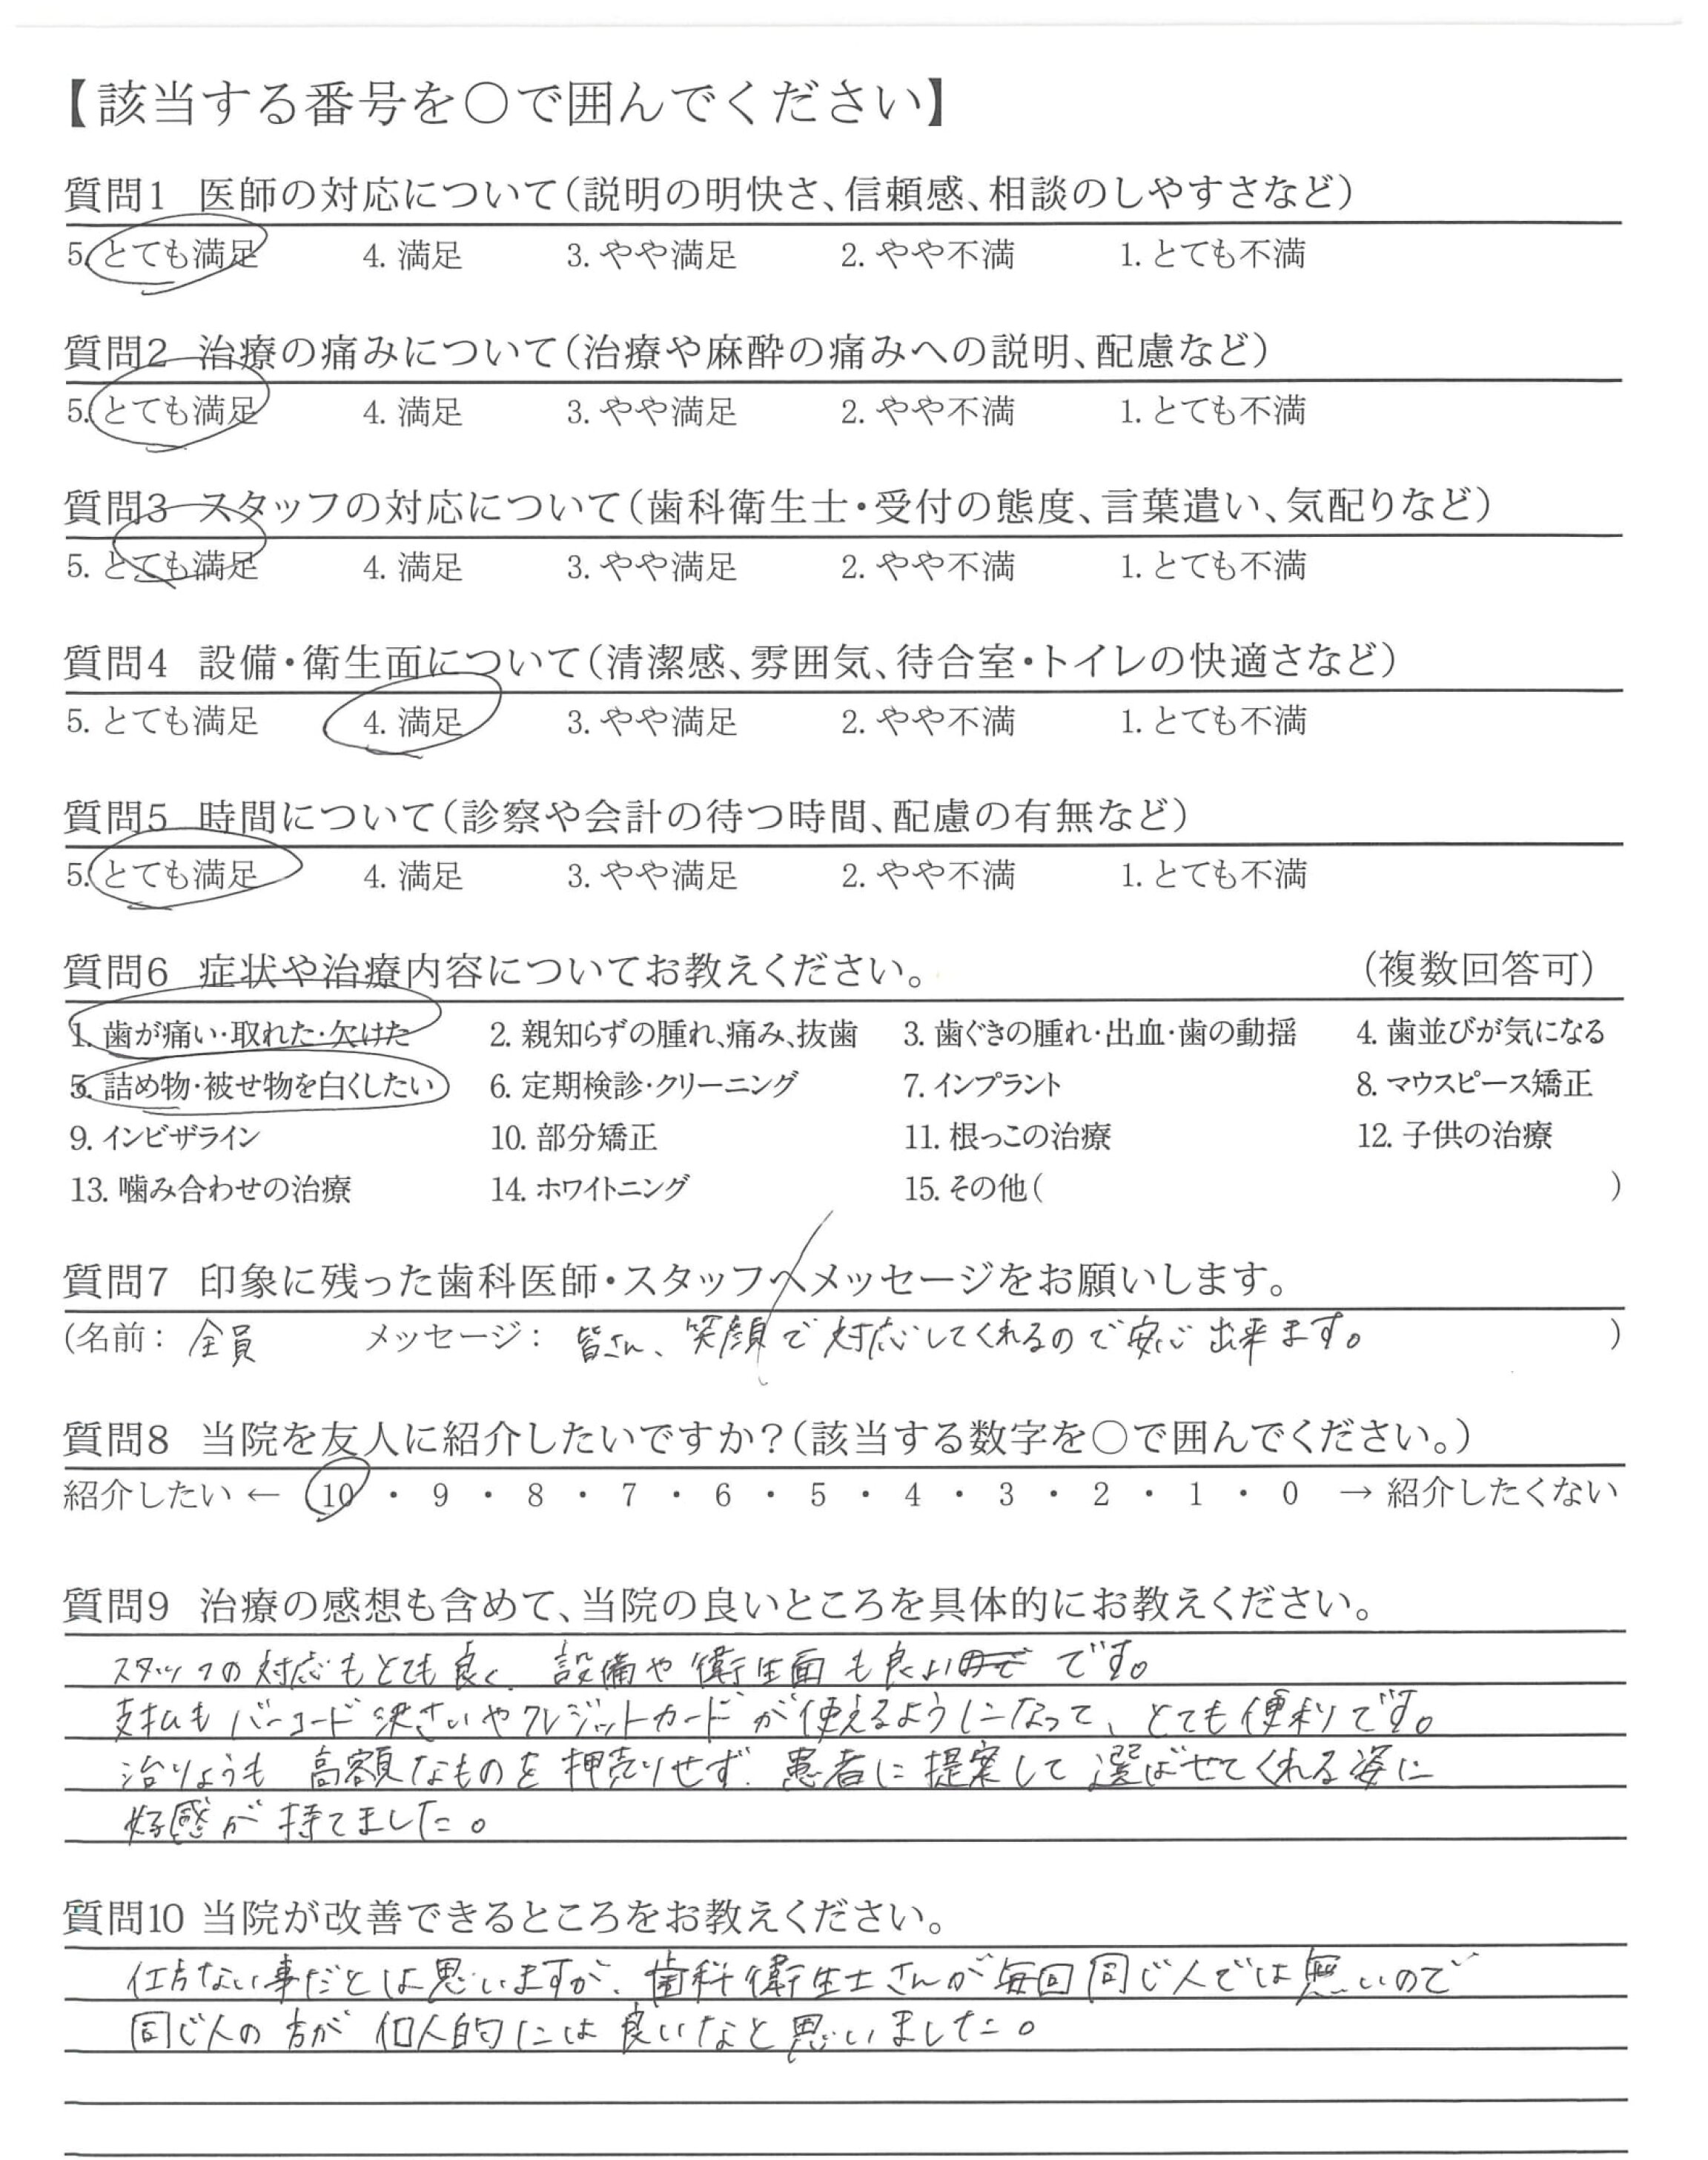 【該当する番号を○で囲んでください】
質問1 医師の対応について(説明の明快さ、信頼感、相談のしやすさなど)
5. とても満足 4. 満足 3. やや満足 2. やや不満 1. とても不満
質問2 治療の痛みについて(治療や麻酔の痛みへの説明、配慮など)
5. とても満足 4. 満足 3. やや満足 2. やや不満 1. とても不満
質問3 スタッフの対応について(歯科衛生士・受付の態度、言葉遣い、気配りなど)
5. とても満足 4. 満足 3. やや満足 2. やや不満 1. とても不満
質問4 設備・衛生面について(清潔感、雰囲気、待合室・トイレの快適さなど)
5. とても満足 4. 満足 3. やや満足 2. やや不満 1. とても不満
質問5 時間について(診察や会計の待つ時間、配慮の有無など)
5. とても満足 4. 満足 3. やや満足 2. やや不満 1. とても不満
質問6 症状や治療内容についてお教えください。 (複数回答可)
1. 歯が痛い・取れた・欠けた 2. 親知らずの腫れ、痛み、抜歯 3. 歯ぐきの腫れ・出血・歯の動揺 4. 歯並びが気になる
5. 詰め物・被せ物を白くしたい 6. 定期検診・クリーニング 7. インプラント 8. マウスピース矯正
9. インビザライン 10. 部分矯正 11. 根っこの治療 12. 子供の治療
13. 噛み合わせの治療 14. ホワイトニング 15. その他( )
質問7 印象に残った歯科医師・スタッフへメッセージをお願いします。
(名前: 全員 メッセージ: 皆さん、笑顔で対応してくれるので安心出来ます。 )
質問8 当院を友人に紹介したいですか?(該当する数字を○で囲んでください。)
紹介したい ← 10 ・ 9 ・ 8 ・ 7 ・ 6 ・ 5 ・ 4 ・ 3 ・ 2 ・ 1 ・ 0 → 紹介したくない
質問9 治療の感想も含めて、当院の良いところを具体的にお教えください。
スタッフの対応もとても良く、設備や衛生面も良いです。
支払もバーコード決さいやクレジットカードが使えるようになって、とても便利です。
治りょうも高額なものを押売りせず、患者に提案して選ばせてくれる姿に
好感が持てました。
質問10 当院が改善できるところをお教えください。
仕方ない事だとは思いますが、歯科衛生士さんが毎回同じ人では無いので
同じ人の方が個人的には良いなと思いました。